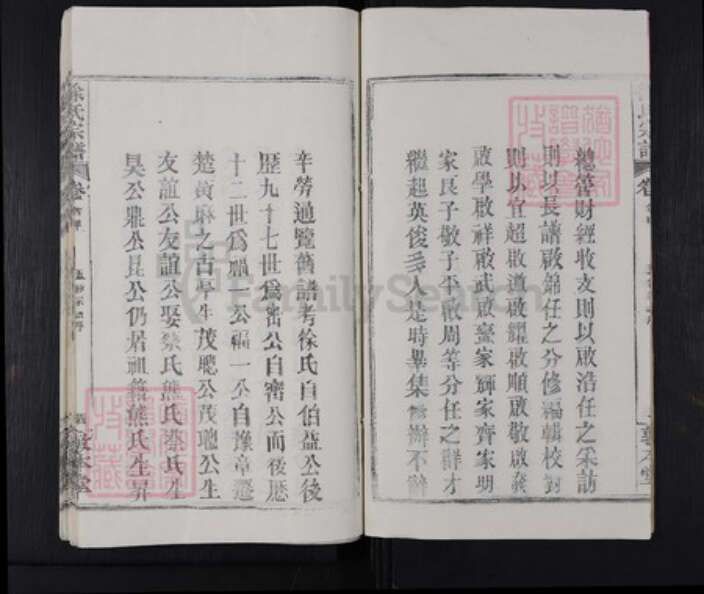 總管財經收支則以啟浩任之采訪
則以長讀啟錦任之分修編輯校對
則以宜超啟道啟耀啟順啟敬啟發
啟學啟祥啟武啟鑾家輝家齊家明
家艮子敬子平啟周等分任之群才
繼起英俊三人是時畢集無辦不辭
辛勞通覽舊譜考徐氏自伯益公後
歷九十七世為密公自密公而後歷
十二世為福一公福一公自豫章遷
楚黃麻之古早生茂聰公茂聰公生
友誼公友誼公娶蔡氏熊氏蔡氏生
昊公鼎公昆公仍居祖籍熊氏生昇
徐氏宗譜 卷
氏宗譜 卷
敦本堂
FamilySearch